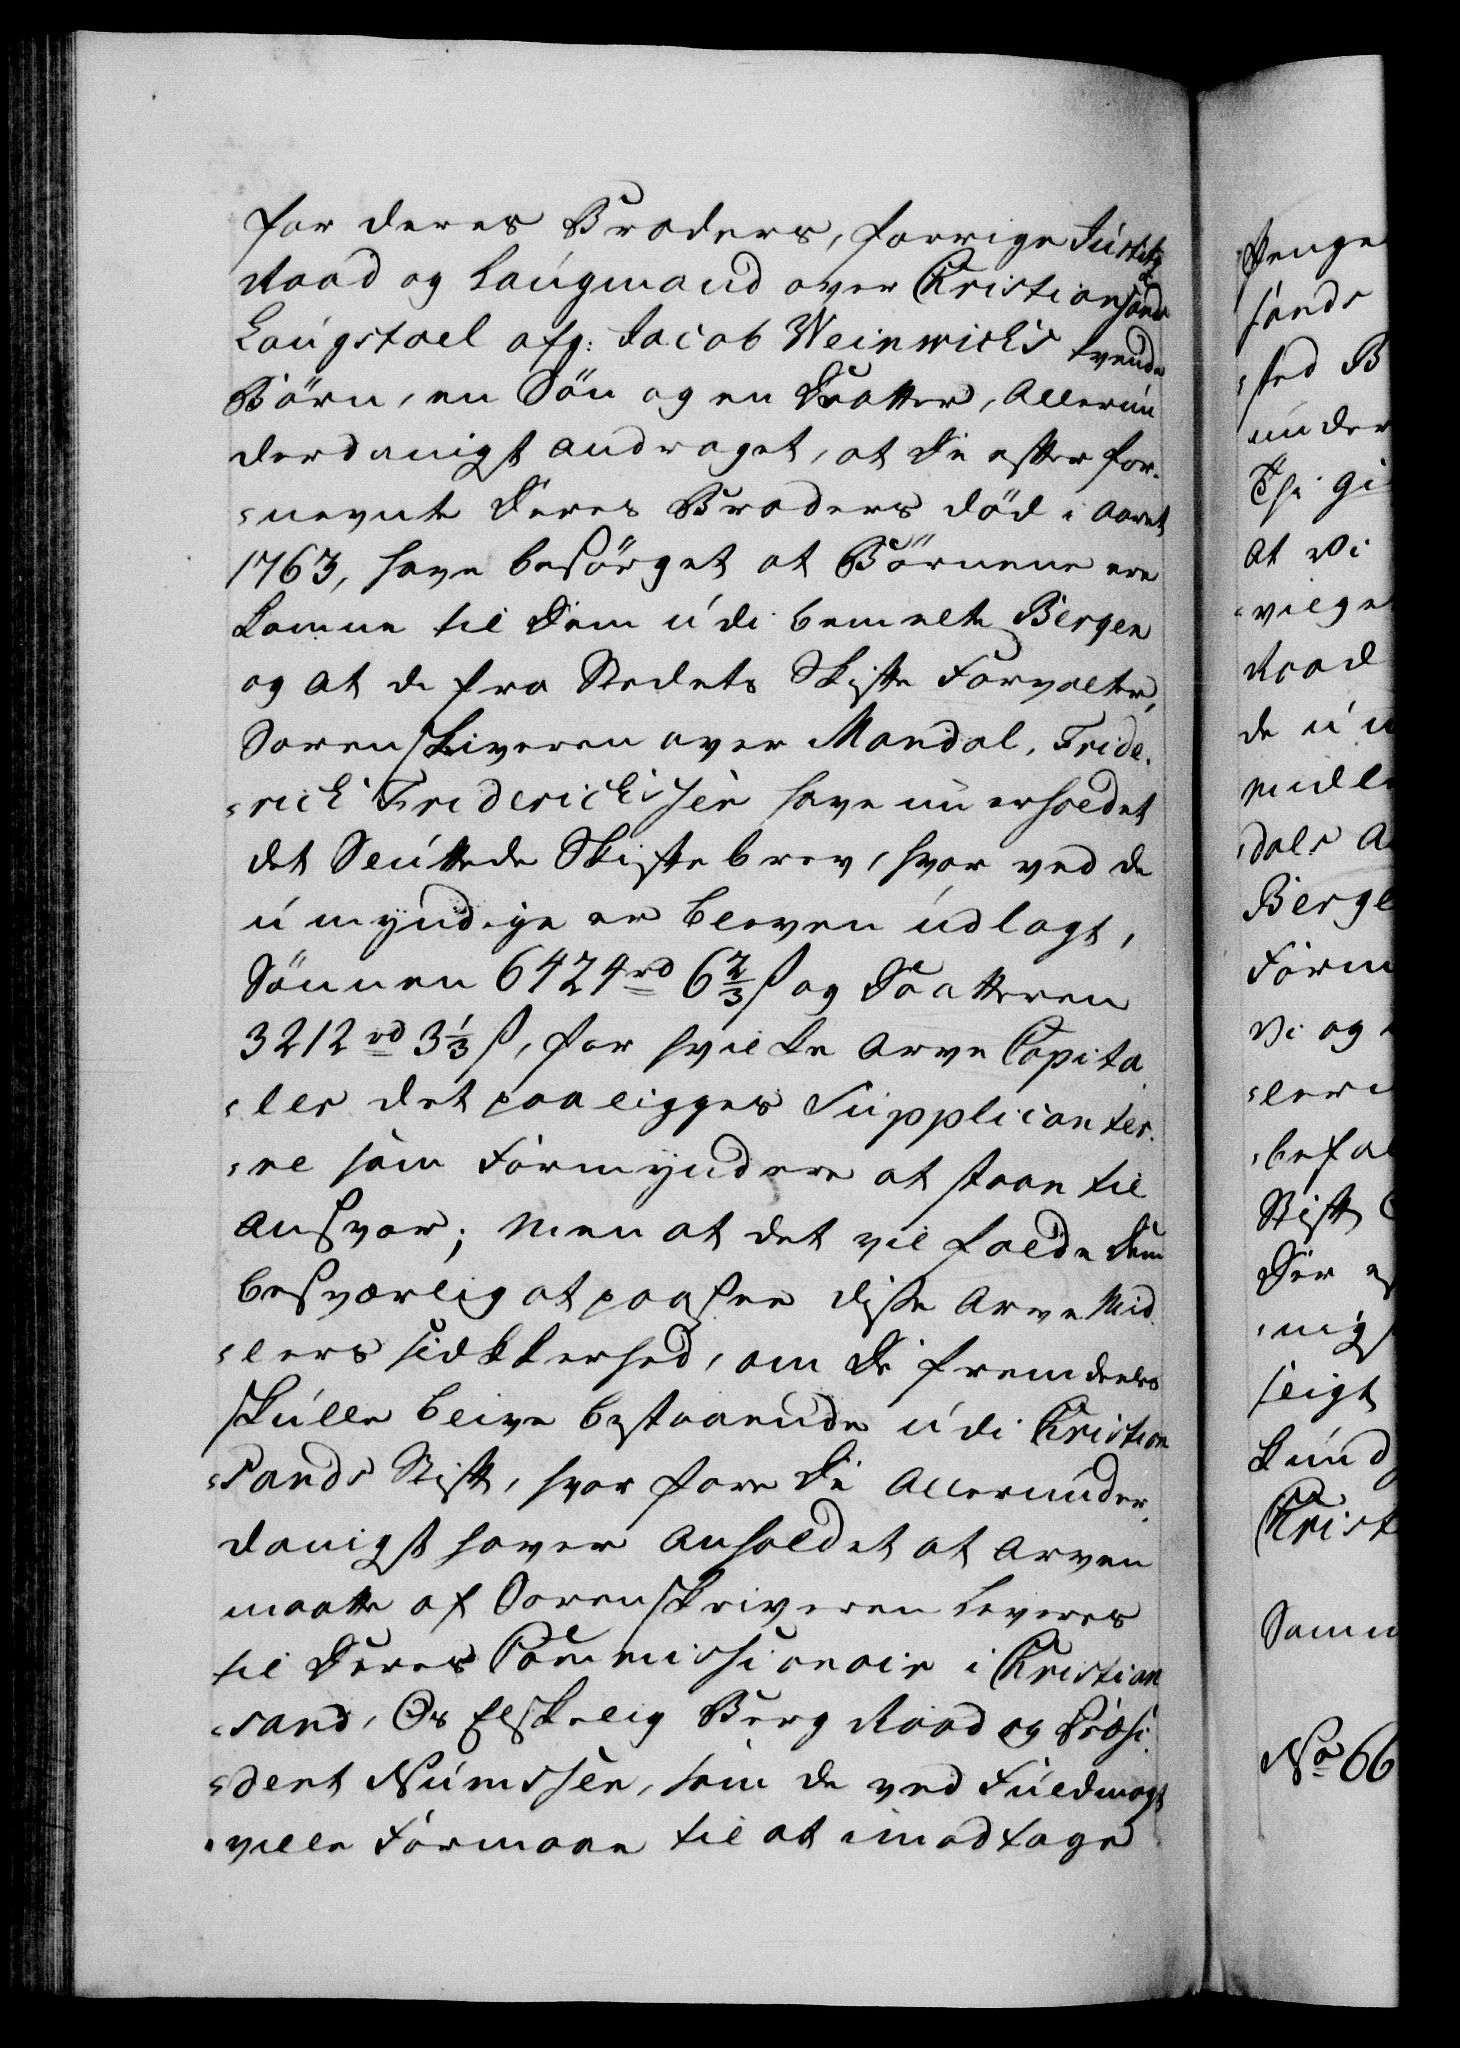 for deres Broders, forrige Justitz
Raad og Laugmand over Christiansands
Laugstoel afg: Jacob Weinwichs tvende
Börn, en Sön og en Daatter, Allerun
derdanigst andraget, at De efter for¬
¬nevnte Deres Broders död i Aaret
1763, have besörget at Börnene ere
komne til Dem udi bemelte Bergen
og at de fra Stedets Skifte Forvalter,
Sorenskriveren over Mandal, Fride¬
¬rich Friderichssen have nu erholdet
det Sluttede Skiftebrev, hvor ved de
umyndige er bleven udlagt,
Sönnen 6424 rd 6 2/3 ß og Daatteren
3212 rd 3 1/3 ß, for hvilke Arve Capita
¬ler det paaligger Supplicanter¬
¬ne som Formyndere at staae til
Ansvar; Men at det vil falde Dem
besværlig at paasee disse Arve Mid
¬lers Sikkerhed, om De fremdeeles
skulle blive bestaaende udi Christian
¬sands Stift, hvor fore De Allerunder¬
danigst haver Anholdet at Arven
maatte af Sorenskriveren leveres
til Deres Commissionair i Christian
¬sand, Os Elskelig Berg Raad og Præsi
¬dent Numssen, som de ved Fuldmagt
ville Formaae til at imodtage
Penge
sands
¬sted B
under
Thi gi
At Vi
¬vilge
Raad
de u u
midle
¬dals A
Berge
Form
Vi og
¬leri
¬befal
Stift
Der ef
¬nigs
ligt
kund
Christ
Samm
No 66